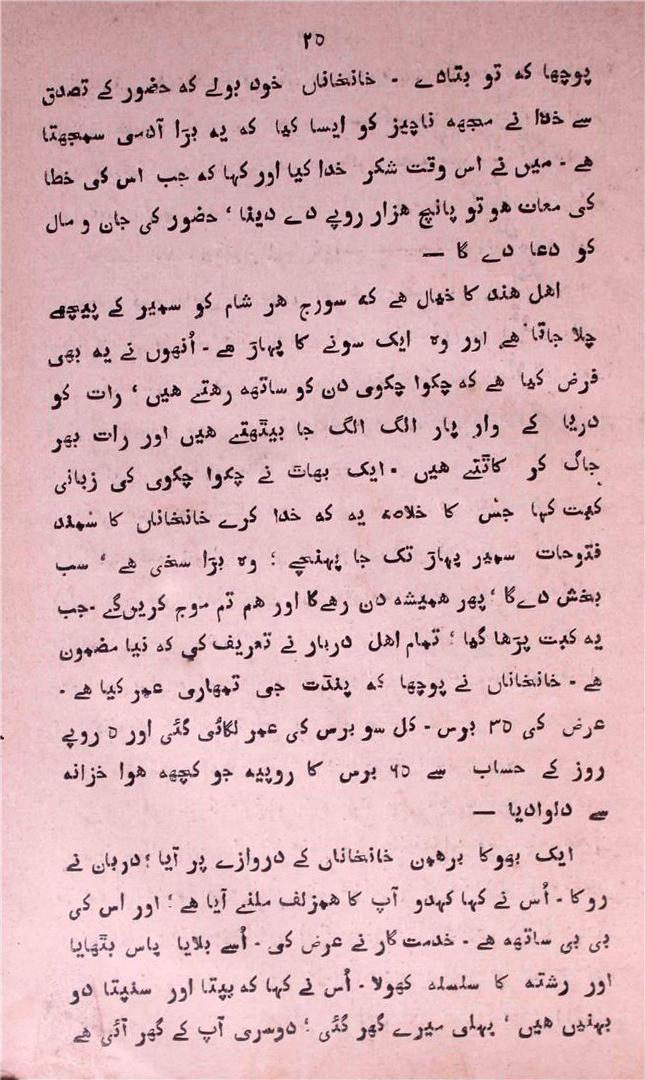 ۲۵
پوچھا که تو بتادے - خانخاناں خود بولے که حضور کے تصدق
سے خدا نے مجھه ناچیز کو ایسا کیا که یه بڑا آدمی سمجھتا
ہے - میں نے اس وقت شکر خدا کیا اور کہا که جب اس کی خطا
کی معاف ہو تو پانچ ہزار روپے دے دینا ، حضور کی جان و مال
کو دعا دے گا —
اهل هند کا خیال ہے که سورج هر شام کو سمیر کے پیچھے
چلا جاتا ہے اور وہ ایک سونے کا پہاڑ ہے - اُنھوں نے یه بھی
فرض کیا ہے که چکوا چکوی دن کو ساتھه رہتے ہیں ، رات کو
دریا کے وار پار الگ الگ جا بیٹھتے ہیں اور رات بھر
جاگ کر کاٹتے ہیں - ایک بھاٹ نے چکوا چکوی کی زبانی
کبت کہا جس کا خلاصه یه که خدا کرے خانخاناں کا سمند
فتوحات سمیر پہاڑ تک جا پہنچے ؛ وہ بڑا سخی ہے ، سب
بخش دے گا ، پھر همیشه دن رہے گا اور هم تم موج کریں گے - جب
یه کبت پڑھا گیا ؛ تمام اهل دربار نے تعریف کی که نیا مضمون
ہے - خانخاناں نے پوچھا که پنڈت جی تمھاری عمر کیا ہے -
عرض کی ۳۵ برس - کل سو برس کی عمر لگائی گئی اور ۵ روپے
روز کے حساب سے ۶۵ برس کا روپیه جو کچھه هوا خزانه
سے دلوادیا —
ایک بھوکا برهمن خانخاناں کے دروازے پر آیا ؛ دربان نے
روکا - اُس نے کہا کہدو آپ کا همزلف ملنے آیا ہے ؛ اور اس کی
بی بی ساتھه ہے - خدمت گار نے عرض کی - اُسے بلایا پاس بٹھایا
اور رشته کا سلسله کھولا - اُس نے کہا که بپتا اور سنپتا دو
بہنیں ہیں ، پہلی میرے گھر گئی ؛ دوسری آپ کے گھر آئی ہے